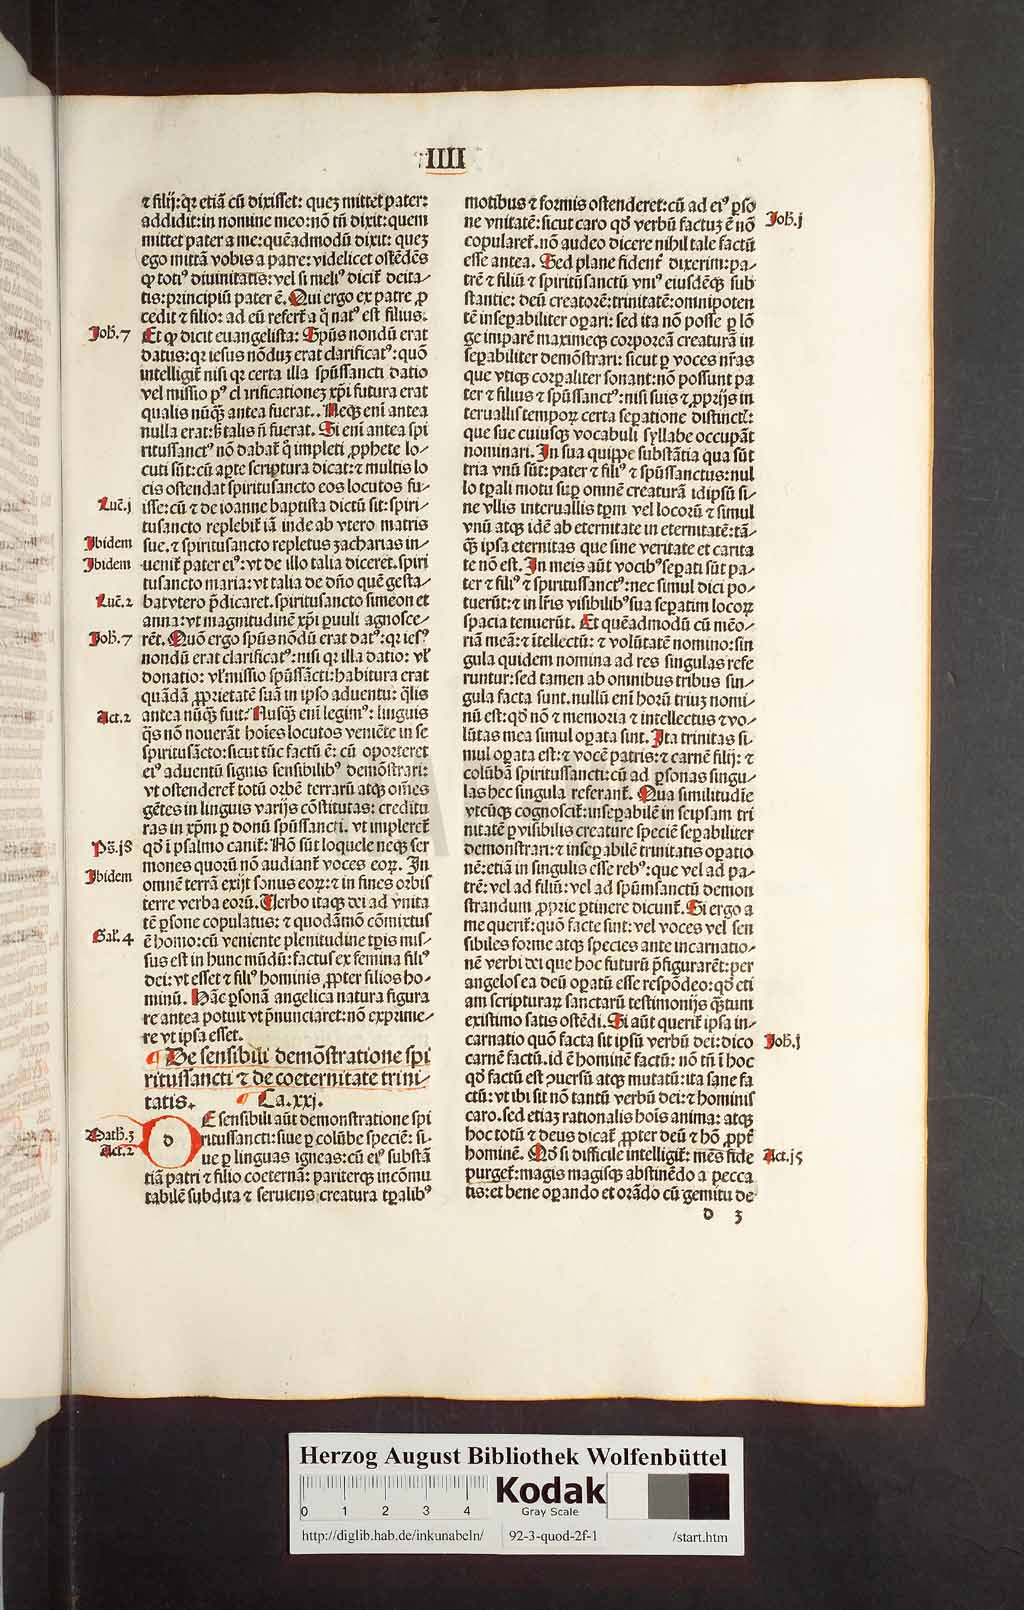 IIII
⁊ filij: qꝛ etiã cũ dixiſſet: quez mittet pater:
addidit: in nomine meo: nõ tñ dixit: quem
mittet pater a me: quẽadmodũ dixit: quez
ego mittã vobis a patre: videlicet oſtẽdẽs
ꝙ totiꝰ diuinitatis: vel ſi meliꝰ dicit̃ deita⸗
tis: principiũ pater ẽ. Qui ergo ex patre ꝓ
cedit ⁊ filio: ad eũ refert̃ a q̃ natꝰ eſt filius.
Joh̃. 7
Et ꝙ dicit euangeliſta: Sp̃us nondũ erat
datus: qꝛ ieſus nõduz erat clarificatꝰ: quõ
intelligit̃ niſi qꝛ certa illa ſpũſſancti datio
vel miſſio pꝰ clarificationez xp̃i futura erat
qualis nũqͣ antea fuerat.. Neqꝫ eni antea
nulla erat: ſꝫ talis ñ fuerat. Si eni antea ſpi
rituſſanctꝰ nõ dabat̃ q̃ impleti ꝓphete lo⸗
cuti ſũt: cũ apte ſcriptura dicat: ⁊ multis lo
cis oſtendat ſpirituſancto eos locutos fu⸗
Luc̃. j
iſſe: cũ ⁊ de ioanne baptiſta dictũ ſit: ſpiri⸗
tuſancto replebit̃ iã inde ab vtero matris
Ibidem
ſue. ⁊ ſpirituſancto repletus zacharias in⸗
Ibidem
uenit̃ pater eiꝰ: vt de illo talia diceret. ſpiri
tuſancto maria: vt talia de dño quẽ geſta⸗
Luc̃. 2
bat vtero p̃dicaret. ſpirituſancto ſimeon et
anna: vt magnitudinẽ xp̃i ꝑuuli agnoſce⸗
Joh̃. 7
rẽt. Quõ ergo ſpũs nõdũ erat datꝰ: qꝛ ieſꝰ
nondũ erat clarificatꝰ: niſi qꝛ illa datio: vl̃
donatio: vl̃ miſſio ſpũſſãcti: habitura erat
quãdã ꝓprietatẽ ſuã in ipſo aduentu: q̃lis
Act. 2
antea nũqͣ fuit. Nuſqͣ eni legimꝰ: linguis
q̃s nõ nouerãt hoies locutos veniẽte in ſe
ſpirituſãcto: ſicut tũc factũ ẽ: cũ oporteret
eiꝰ aduentũ ſignis ſenſibilibꝰ demõſtrari:
vt oſtenderet̃ totũ orbẽ terrarũ atqꝫ om̃es
gẽtes in linguis varijs cõſtitutas: creditu
ras in xp̃m ꝑ donũ ſpũſſancti. vt impleret̃
Ps̃. j8
qd̃ i pſalmo canit̃: Nõ ſũt loquele neqꝫ ſer
mones quorũ nõ audiant̃ voces eoꝝ. In
Ibidem
omnẽ terrã exijt ſonus eoꝝ: ⁊ in fines orbis
terre verba eorũ. Verbo itaqꝫ dei ad vnita
tẽ ꝑſone copulatus: ⁊ quodãmõ cõmixtus
Gal̃. 4
ẽ homo: cũ veniente plenitudine tp̃is miſ⸗
ſus eſt in hunc mũdũ: factus ex femina filiꝰ
dei: vt eſſet ⁊ filiꝰ hominis ꝓpter filios ho⸗
minũ. Hãc ꝑſonã angelica natura figura
re antea potuit vt p̃nunciaret: nõ exprime⸗
re vt ipſa eſſet.
¶ De ſenſibili demõſtratione ſpi
rituſſancti ⁊ de coeternitate trini⸗
tatis. ¶ Ca. xxj.
d
E ſenſibili aũt demonſtratione ſpi
Math̃. 3
rituſſancti: ſiue ꝑ colũbe ſpeciẽ: ſi⸗
Act. 2
ue ꝑ linguas igneas: cũ eiꝰ ſubſtã
tiã patri ⁊ filio coeternã: pariterqꝫ incõmu
tabilẽ ſubdita ⁊ ſeruiens creatura tꝑalibꝰ
motibus ⁊ formis oſtenderet: cũ ad eiꝰ ꝑſo
Joh̃. j
ne vnitatẽ: ſicut caro qd̃ verbũ factuz ẽ nõ
copularet̃. nõ audeo dicere nihil tale factũ
eſſe antea. Sed plane fident̃ dixerim: pa⸗
trẽ ⁊ filiũ ⁊ ſpirituſanctũ vniꝰ eiuſdẽqꝫ ſub
ſtantie: deũ creatorẽ: trinitatẽ: omnipoten
tẽ inſeꝑabiliter oꝑari: ſed ita nõ poſſe ꝑ lõ
ge imparẽ maximeqꝫ corporeã creaturã in
ſeꝑabiliter demõſtrari: ſicut ꝑ voces nr̃as
que vtiqꝫ corꝑaliter ſonant: nõ poſſunt pa
ter ⁊ filius ⁊ ſpũſſanctꝰ: niſi ſuis ⁊ ꝓprijs in
teruallis tempoꝝ certa ſeꝑatione diſtinct̃:
que ſue cuiuſqꝫ vocabuli ſyllabe occupãt
nominari. In ſua quippe ſubſtãtia qua ſũt
tria vnũ ſũt: pater ⁊ filiꝰ ⁊ ſpũſſanctus: nul
lo tꝑali motu ſuꝑ omnẽ creaturã idipſũ ſi⸗
ne vllis interuallis tꝑm vel locorũ ⁊ ſimul
vnũ atqꝫ idẽ ab eternitate in eternitatẽ: tã⸗
qͣ ipſa eternitas que ſine veritate et carita
te nõ eſt. In meis aũt vocibꝰ ſeꝑati ſũt pa⸗
ter ⁊ filiꝰ ⁊ ſpirituſſanctꝰ: nec ſimul dici po⸗
tuerũt: ⁊ in lr̃is viſibilibꝰ ſua ſeꝑatim locoꝝ
ſpacia tenuerũt. Et quẽadmodũ cũ mẽo⸗
riã meã: ⁊ ĩtellectũ: ⁊ volũtatẽ nomino: ſin
gula quidem nomina ad res ſingulas refe
runtur: ſed tamen ab omnibus tribus ſin⸗
gula facta ſunt. nullũ eni horũ triuz nomi⸗
nũ eſt: qd̃ nõ ⁊ memoria ⁊ intellectus ⁊ vo⸗
lũtas mea ſimul oꝑata ſint. Ita trinitas ſi⸗
mul oꝑata eſt: ⁊ vocẽ patris: ⁊ carnẽ filij: ⁊
colũbã ſpirituſſancti: cũ ad ꝑſonas ſingu⸗
las hec ſingula referant̃. Qua ſimilitudĩe
vtcũqꝫ cognoſcit̃: inſeꝑabilẽ in ſeipſam tri
nitatẽ ꝑ viſibilis creature ſpeciẽ ſeꝑabiliter
demonſtrari: ⁊ inſeꝑabilẽ trinitatis oꝑatio
nẽ: etiã in ſingulis eſſe rebꝰ: que vel ad pa⸗
trẽ: vel ad filiũ: vel ad ſpũmſanctũ demon
ſtrandum ꝓprie ꝑtinere dicunt̃. Si ergo a
me querit̃: quõ facte ſint: vel voces vel ſen
ſibiles forme atqꝫ ſpecies ante incarnatio⸗
nẽ verbi dei que hoc futurũ p̃figurarẽt: per
angelos ea deũ oꝑatũ eſſe reſpõdeo: qd̃ eti
am ſcripturaꝝ ſanctarũ teſtimonijs qͣtum
exiſtimo ſatis oſtẽdi. Si aũt querit̃ ipſa in⸗
Joh̃. j
carnatio quõ facta ſit ipſũ verbũ dei: dico
carnẽ factũ. id ẽ hominẽ factũ: nõ tñ i hoc
qd̃ factũ eſt ↄuerſũ atqꝫ mutatũ: ita ſane fa
ctũ: vt ibi ſit nõ tantũ verbũ dei: ⁊ hominis
caro. ſed etiaz rationalis hoĩs anima: atqꝫ
hoc totũ ⁊ deus dicat̃ ꝓpter deũ ⁊ hõ ꝓpt̃
Act. j5
hominẽ. Qd̃ ſi difficile intelligit̃: mẽs fide
purget̃: magis magiſqꝫ abſtinẽdo a pecca
tis: et bene oꝑando et orãdo cũ gemitu de
d 3
Herzog August Bibliothek Wolfenbüttel
0 1 2 3 4
Kodak
Gray Scale
http://diglib.hab.de/inkunabeln/ 92-3-quod-2f-1 /start.htm